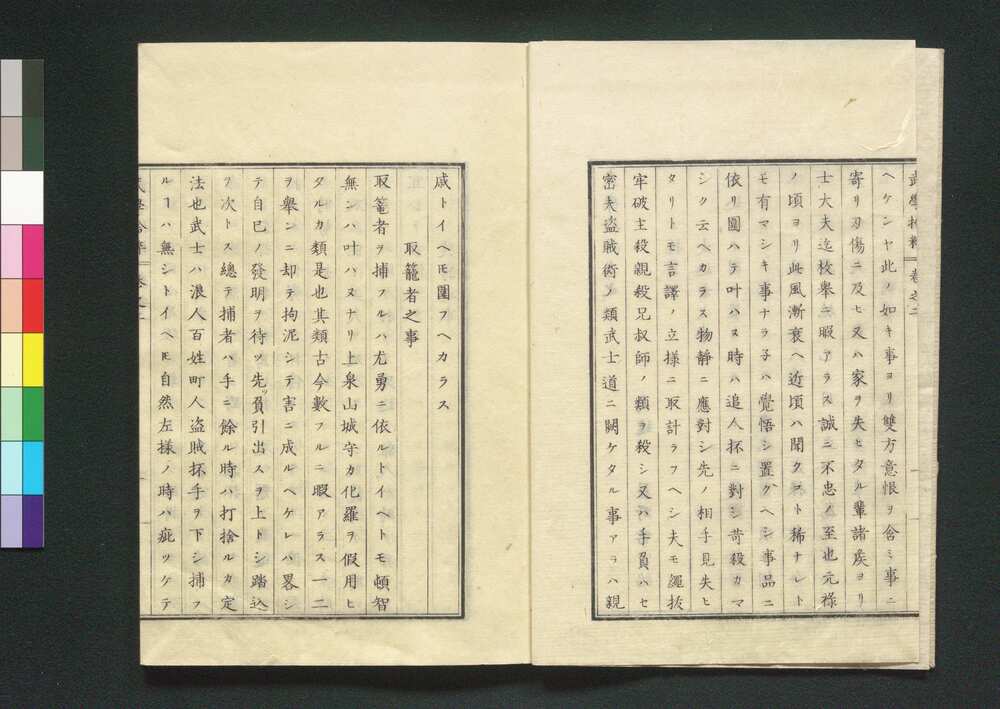 ヘケンヤ此ノ如キ事ヨリ雙方意恨ヲ含ミ事ニ
寄リ刃傷ニ及ヒ又ハ家ヲ失ヒタル輩諸矦ヨリ
士大夫迄枚舉ニ暇アラス誠ニ不忠ノ至也元祿
ノ頃ヨリ此風漸衰ヘ近頃ハ聞クヿト稀ナレト
モ有マシキ事ナラ子ハ覺悟シ置グヘシ事品ニ
依リ圍ハテ叶ハヌ時ハ追人抔ニ對シ苛殺カマ
シク云ヘカラス物靜ニ應對シ先ノ相手見失ヒ
タリトモ言譯ノ立樣ニ取計ラフヘシ夫モ繩抜
牢破主殺親殺兄叔師ノ類ヲ殺シ又ハ手負ハセ
密夫盜賊術ノ類武士道ニ闕ケタル事アラハ親
戚トイヘ𪜈圍フヘカラス
取籠者之事
取篭者ヲ捕フルハ尤勇ニ依ルトイヘトモ頓智
無ンハ叶ハヌナリ上泉山城守カ化羅ヲ假用ヒ
タルカ類是也其類古今數フルニ暇アラス一二
ヲ舉ンニ却テ拘泥シテ害ニ成ルヘケレハ畧シ
テ自已ノ發明ヲ待ツ先ッ負引出スヲ上トシ踏込
ヲ次トス總テ捕者ハ手ニ餘ル時ハ打捨ルカ定
法也武士ハ浪人百姓町人盜賊抔手ヲ下シ捕フ
ルーハ無シトイヘ𪜈自然左樣ノ時ハ疵ツケテ